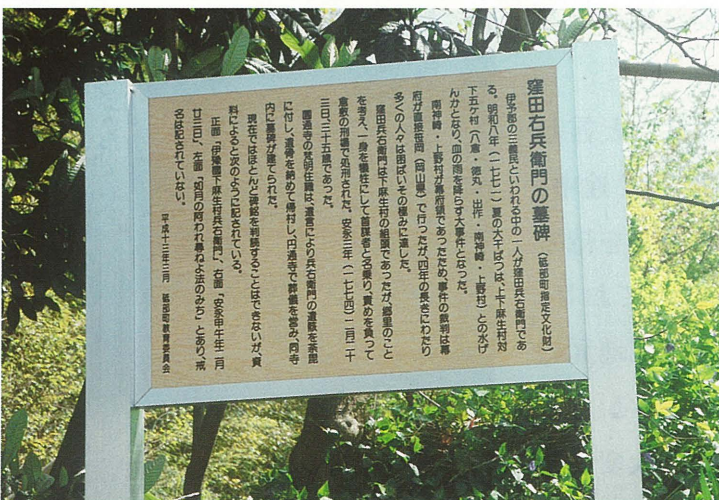 窪田右兵衛門の墓碑（砥部町指定文化財）
伊予郡の三義民といわれる中の一人が窪田兵右衛門であ
る。明和八年（一七七一）夏の大干ばつは、上下麻生村対
下五ヶ村（八倉・徳丸・出作・南神崎・上野村）との水げ
んかとなり、血の雨を降らす大事件となった。
南神崎・上野村が幕府領であったため、事件の裁判は幕
府が直接笠岡（岡山県）で行ったが、四年の長きにわたり
多くの人々は困ぱいその極みに達した。
窪田兵右衛門は下麻生村の組頭であったが、郷里のこと
を考え、一身を犠牲にして首謀者と名乗り、責めを負って
倉敷の刑場で処刑された。安永三年（一七七四）二月二十
三日、三十五歳であった。
圓通寺の梵明住職は、遺言により兵右衛門の遺骸を荼毘
に付し、遺骨を納めて帰村し、円通寺で葬儀を営み、同寺
内に墓碑が建てられた。
現在ではほとんど碑銘を判読することはできないが、資
料によると次のように記されている。
正面「伊豫國下麻生村兵右衛門」、右面「安永甲午年二月
廿三日」、左面「如月の阿われ尋ねよ法のみち」とあり、戒
名は記されていない。
平成十三年三月　砥部町教育委員会